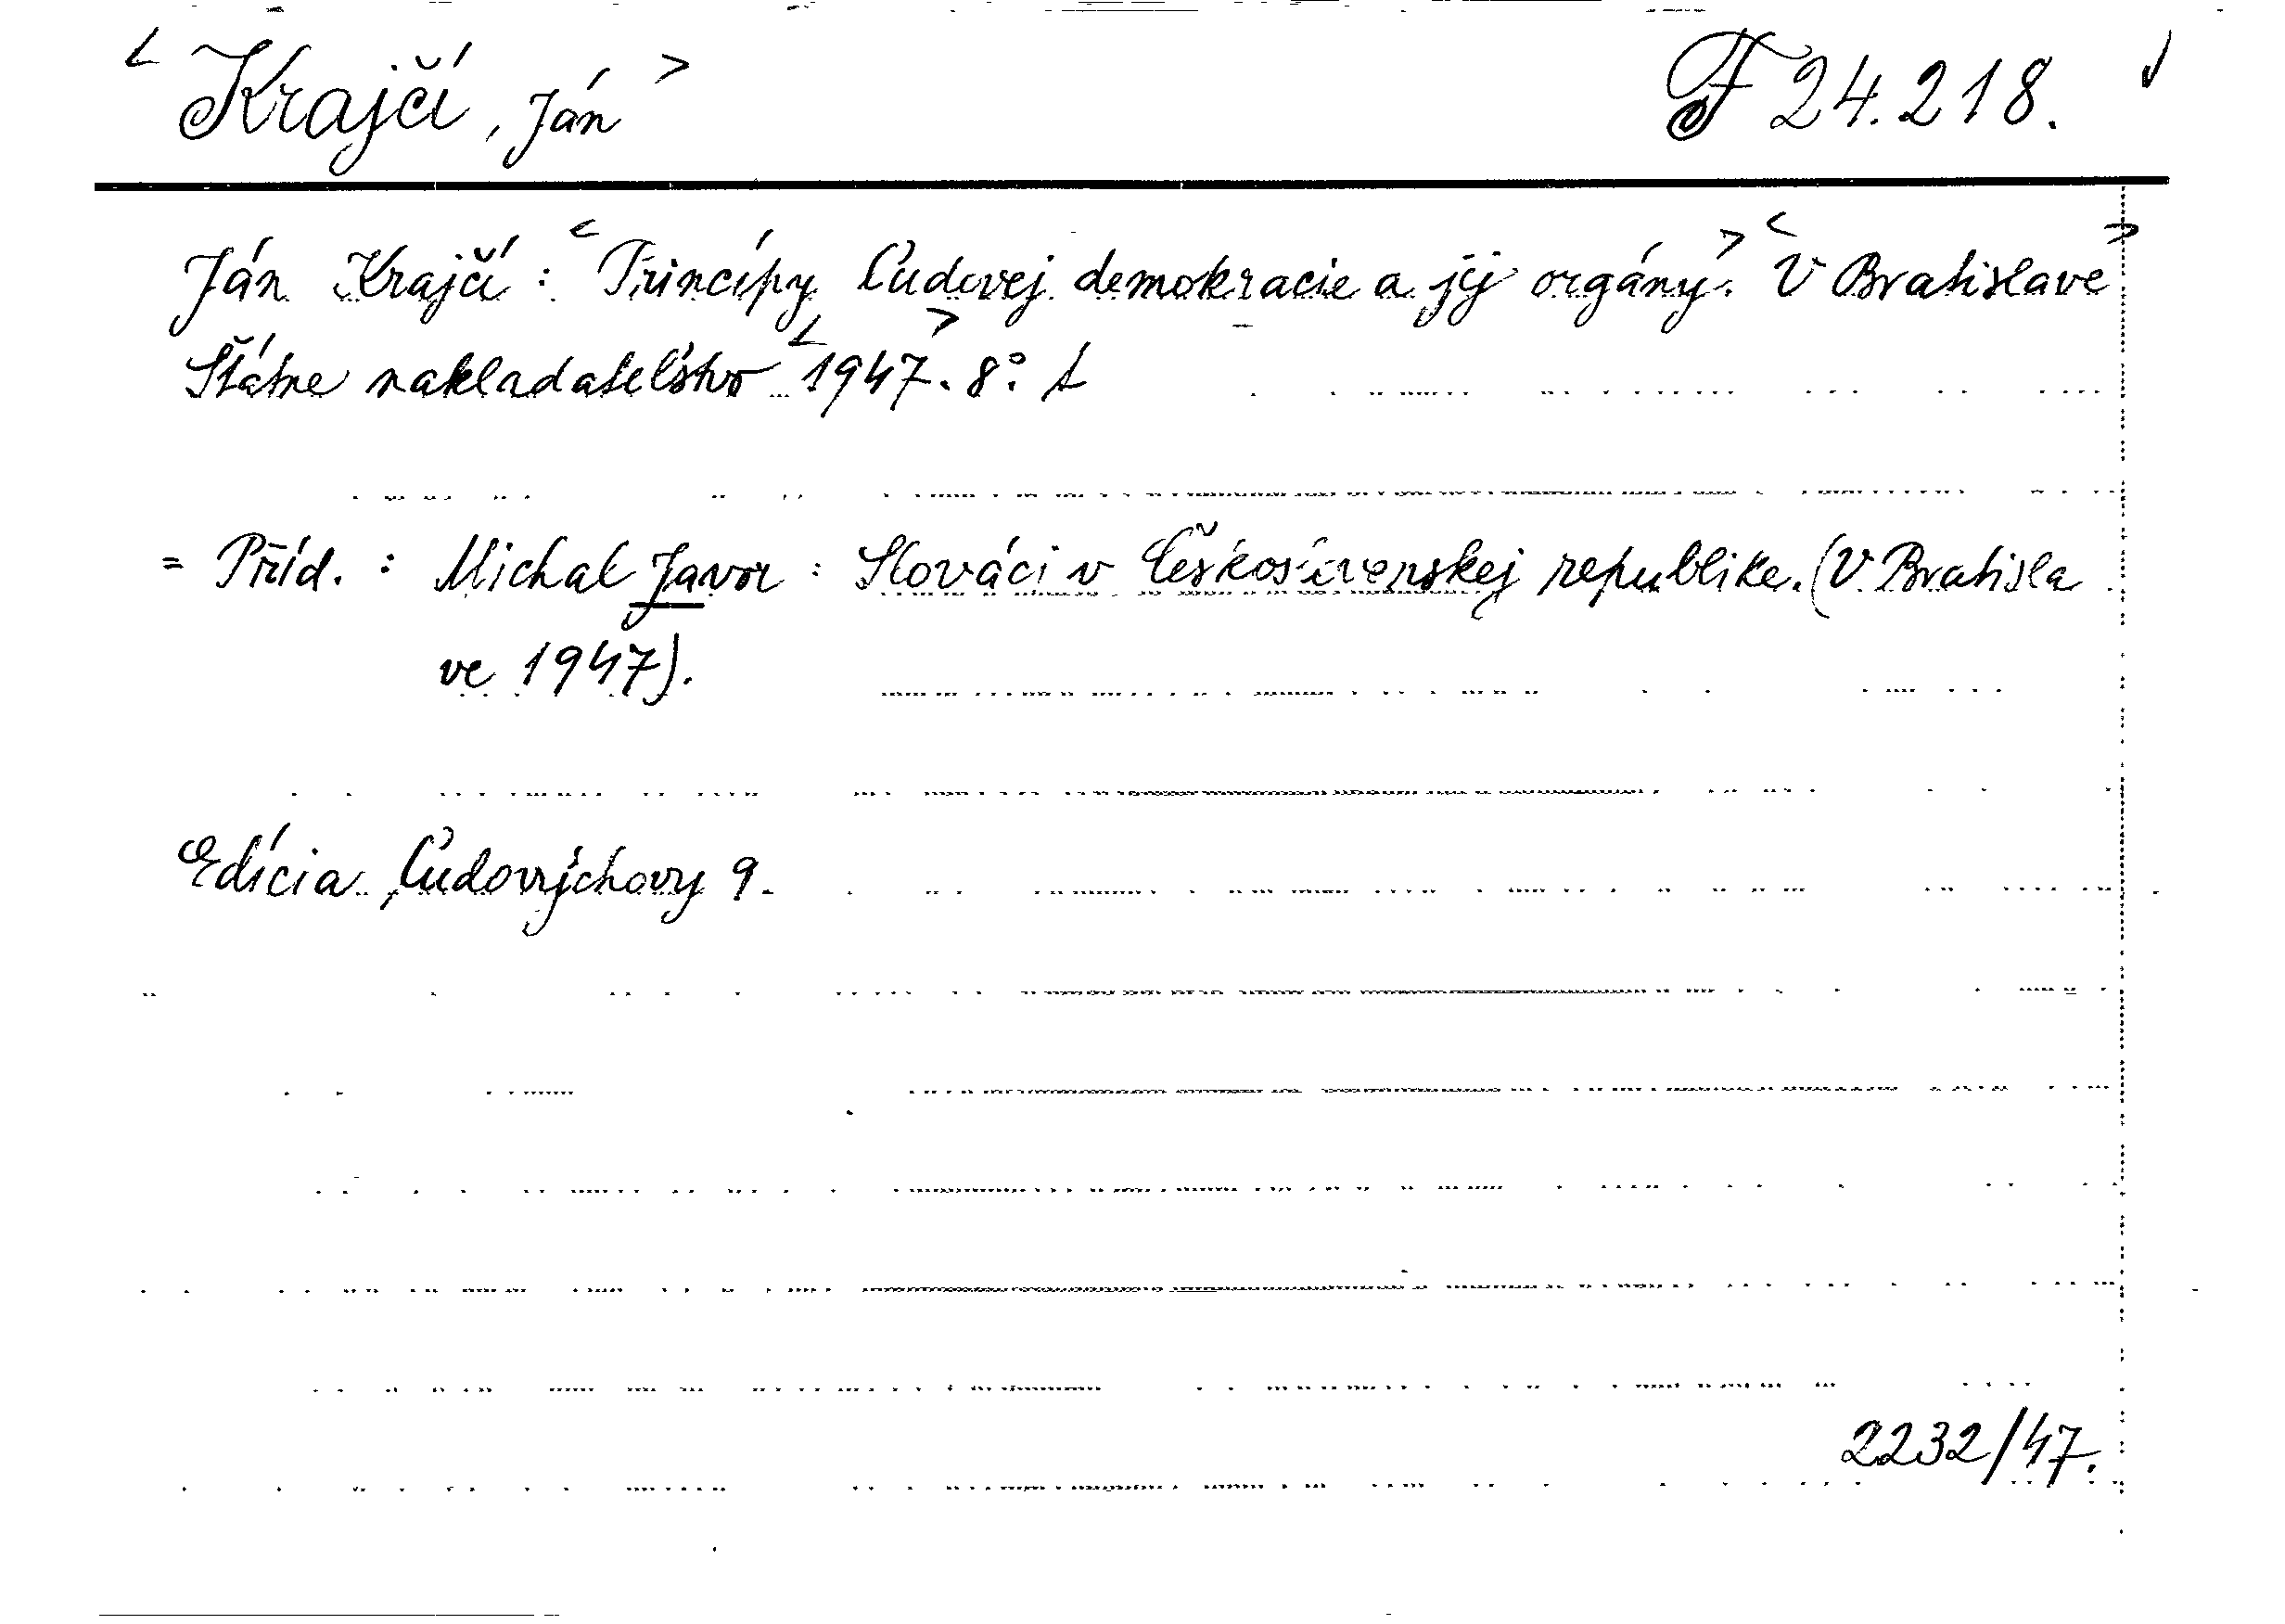 < Krajčí, Ján > F 24.218.
Ján Krajčí: <Princípy ľudovej demokracie a jej orgány.> <V Bratislave>
Štátne nakladateľstvo <1947>. 8°.
= Příd. : Michal Javor : Slováci v Československej republike. (V Bratisla
ve 1947).
Edícia Ľudovýchovy 9.
2232/47.